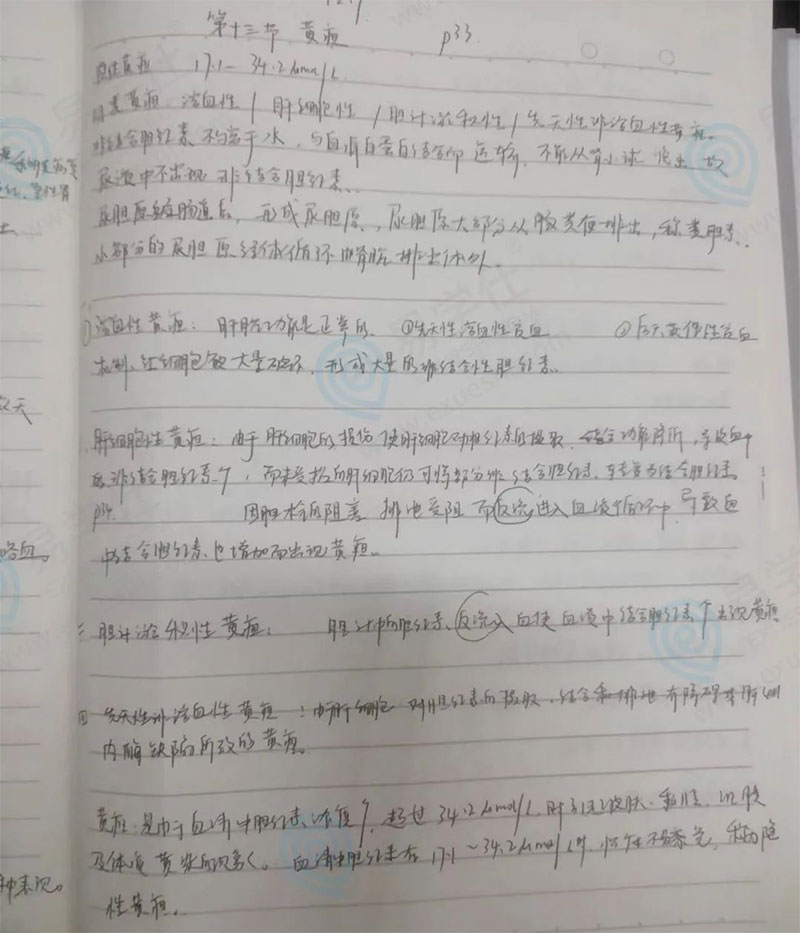 第十三节 黄疸 p33.
隐性黄疸 17.1- 34.2μmol/L
溶血性 / 肝细胞性 / 胆汁淤积性 / 先天性非溶血性黄疸.
非结合胆红素 不溶于水, 与血清白蛋白结合 运输, 不能从肾小球 滤出, 故
尿液中不出现 非结合胆红素.
肠道后, 形成尿胆原, 尿胆原大部分从 排出, 称粪胆素.
小部分的尿胆原 经体循环由肾脏 排出体外.
溶血性黄疸: 肝脏功能是正常的. ①先天性溶血性贫血 ②后天获得性贫血
机制: 红细胞 大量破坏, 形成大量的非结合性胆红素.
肝细胞性黄疸: 由于肝细胞的损伤 使肝细胞对胆红素的摄取 结合功能 , 导致血中
非结合胆红素↑, 而未受损的肝细胞仍可将部分非结合胆红素 转变为结合胆红素.
p34. 因胆栓的阻塞 排泄受阻 而反流进入血液循环中 导致血
中结合胆红素也增加而出现黄疸。
三 胆汁淤积性黄疸: 胆汁中的胆红素 反流入血使血液中结合胆红素↑出现黄疸
四 先天性非溶血性黄疸: 由肝细胞 对胆红素的摄取, 结合和排泄有障碍 肝细
内酶缺陷所致的黄疸。
黄疸: 是由于血清中胆红素浓度↑, 超过34.2μmol/L时 引起皮肤. 黏膜. 巩膜
及体液黄染的现象。 血清中胆红素在17.1~34.2μmol/L时, 不易察觉, 称为隐
性黄疸.
咯血。